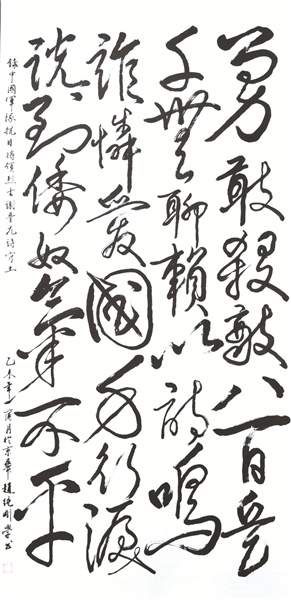 勇敢殺敵八百兵
無聊賴以詩鳴
誰憐愛國千行淚
說到倭奴氣不平
錄中國軍隊抗日將領烈士謝晉元詩守土
乙未年月於京華趙純剛學書